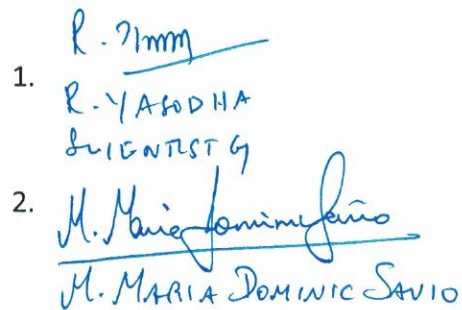 1. R.
R. YASODHA
SCIENTIST G
2. M. Maria Dominic Savio
M. MARIA DOMINIC SAVIO